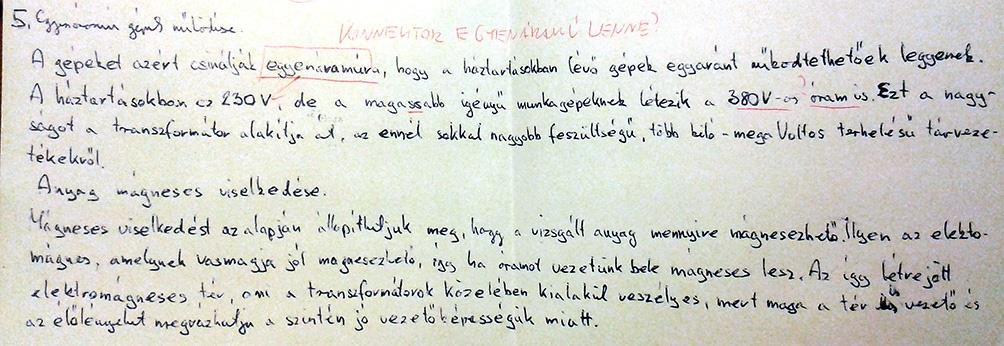 5. Egyenáramú gépek működése.
KONNEKTOR EGYENÁRAMÚ LENNE?
A gépeket azért csinálják egyenáramúra, hogy a háztartásokban lévő gépek egyaránt működtethetőek leggyenek.
A háztartásokban ez 230V, de a magassabb igényű munkagépeknek létezik a 380V-os áram is. Ezt a nagy-
ságot a transzformátor alakítja át, az ennél sokkal nagyobb feszültségű, több kiló-mega Voltos terhelésű távveze-
tékekről.
Anyag mágneses viselkedése.
Mágneses viselkedést az alapján állapíthatjuk meg, hogy a vizsgált anyag mennyire mágnesezhető. Ilyen az elekto-
mágnes, amelynek vasmagja jól mágnesezhető, így ha áramot vezetünk bele mágneses lesz. Az így létrejött
elektromágneses tér, ami a transzformátorok közelében kialakúl veszélyes, mert maga a tér is vezető és
az élőlényeket megrázhatja a szintén jó vezetőképességük miatt.